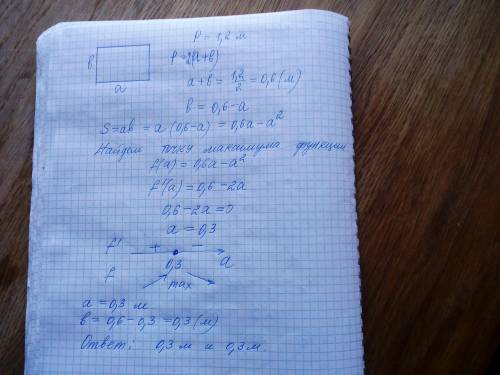 P = 1,2 м
в
P = 2(a+в)
a
a+в = 1,2/2 = 0,6 (м)
в = 0,6-a
S=aв = a (0,6-a) = 0,6a-a²
Найдем точку максимума функции
f(a) = 0,6a-a²
f'(a) = 0,6 -2a
0,6 -2a =0
a = 0,3
f' + −
0,3 a
f max
a =0,3 м
в = 0,6-0,3 =0,3 (м)
Ответ: 0,3 м и 0,3 м.